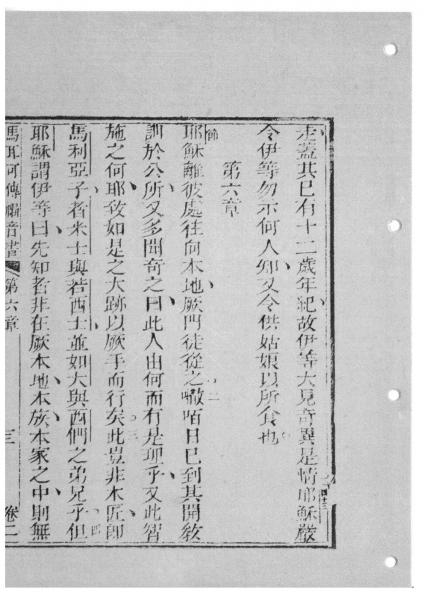 走蓋其已有十二歲年紀故伊等大見奇異是情耶穌嚴
四三
令伊等勿示何人知又令供姑娘以所食也
第六章
節
耶穌離彼處往向本地厥門徒從之嗷咟日已到其開敎
二
訓於公所又多聞奇之曰此人由何而有是理乎又此智
施之何耶致如是之大跡以厥手而行矣此豈非木匠即
三
馬利亞子者米士與若西士並如大與西們之弟兄乎但
四
耶穌謂伊等曰先知者非在厥本地本族本家之中則無
馬耳可傳福音書 第六章 三 卷二